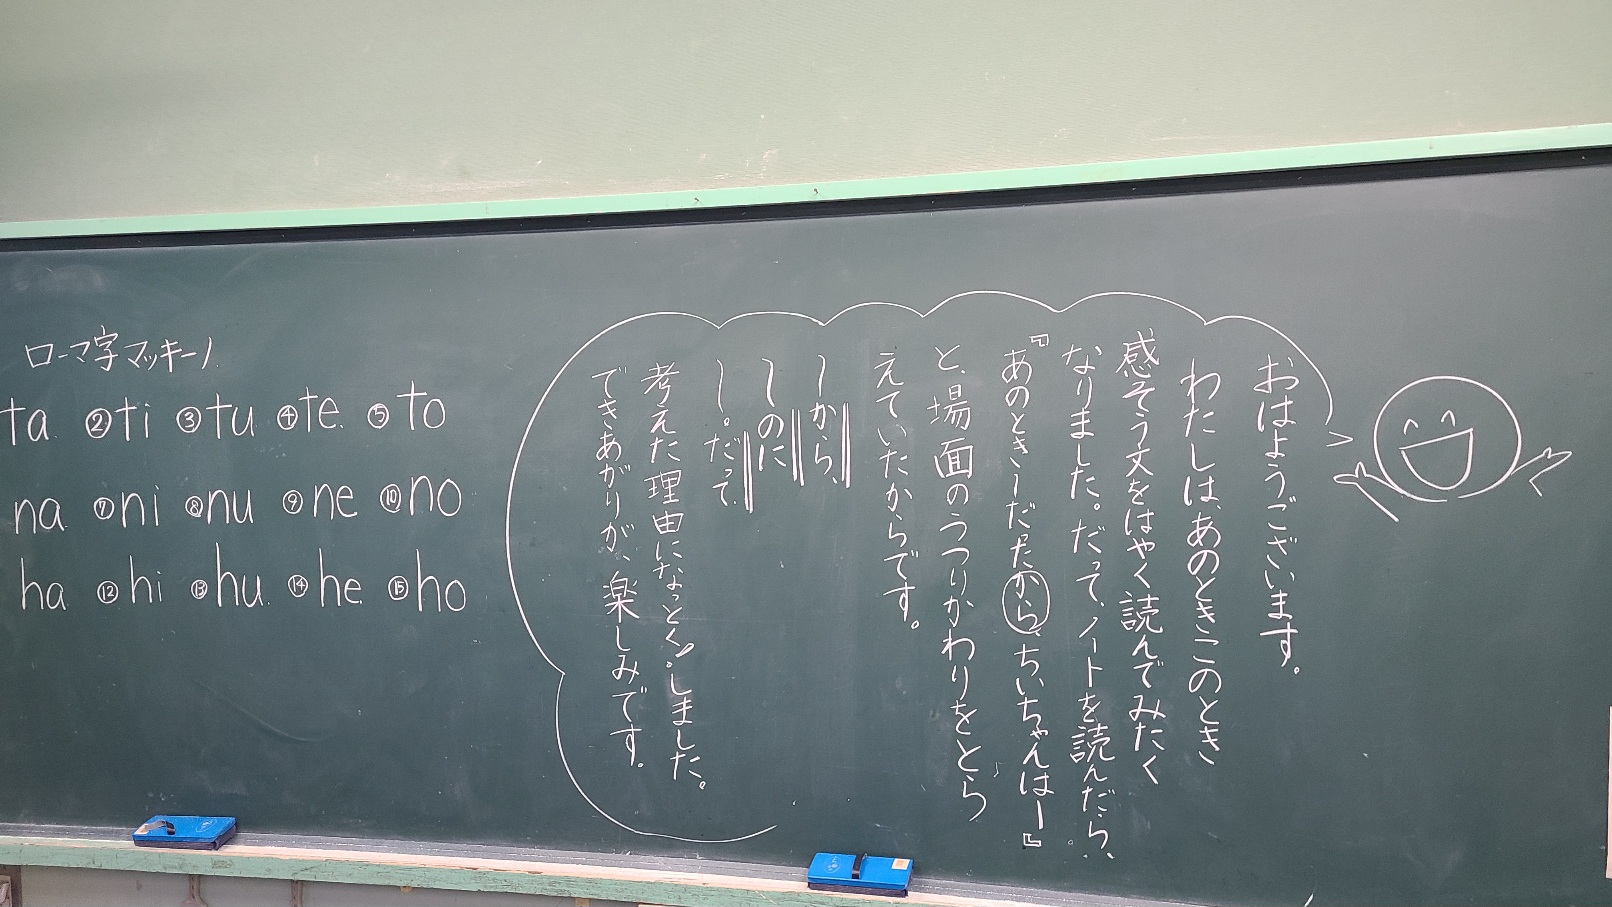 おはようございます。
わたしは、あのときこのとき
感そう文をはやく読んでみたく
なりました。だって、ノートを読んだら、
『あのときーだったから、ちいちゃんはー』
と、場面のうつりかわりをとら
えていたからです。
～から、
～のに
～。だって、
考えた理由になっとく!しました。
できあがりが、楽しみです。
ローマ字マッキーノ
ta ②ti ③tu ④te ⑤to
na ⑦ni ⑧nu ⑨ne ⑩no
ha ⑫hi ⑬hu ⑭he ⑮ho